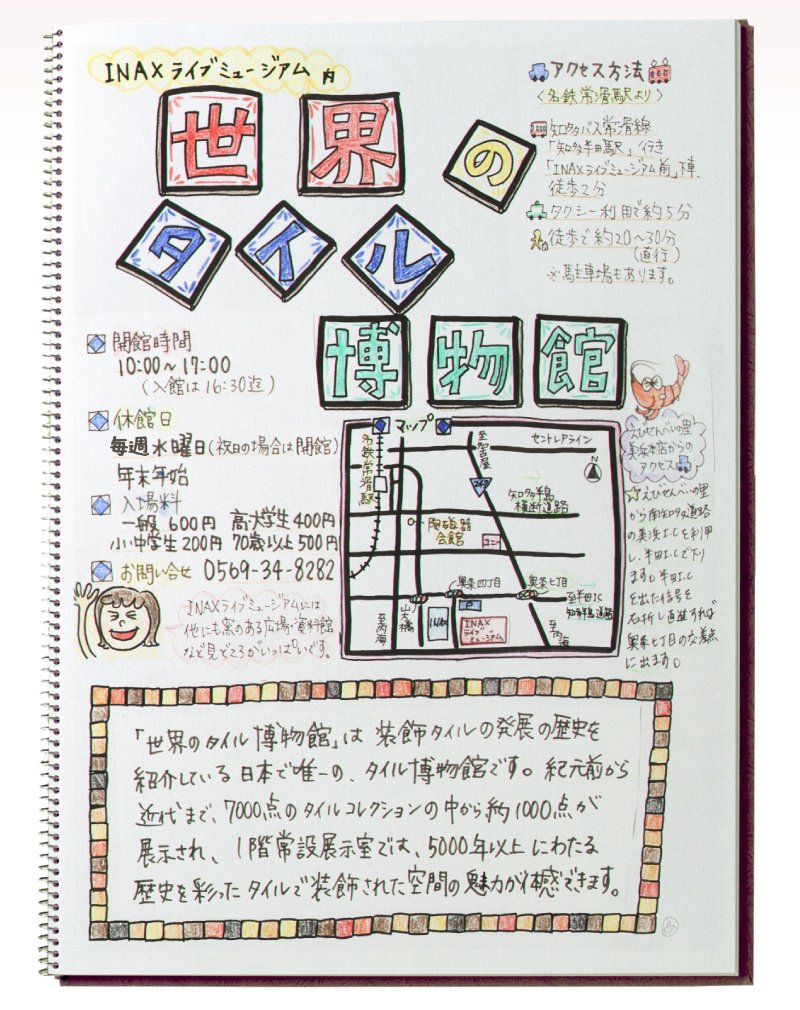 INAXライブミュージアム内
世界の
タイル
博物館
アクセス方法
〈名鉄常滑駅より〉
知多バス常滑線
「知多半田駅」行き
「INAXライブミュージアム前」下車、
徒歩2分
タクシー利用で約5分
徒歩で約20〜30分
(直行)
※駐車場もあります。
開館時間
10:00〜17:00
(入館は16:30迄)
休館日
毎週水曜日(祝日の場合は開館)
年末年始
入場料
一般 600円 高・大学生 400円
小中学生 200円 70歳以上 500円
お問い合せ 0569-34-8282
INAXライブミュージアムには
他にも窯のある広場・資料館
など見どころがいっぱいです。
マップ
名鉄常滑駅
至名古屋
セントレアライン
N
247
知多半島
横断道路
陶磁器
会館
コニー
奥条四丁目
奥条七丁目
至半田I.C
知多半島道路
至内海
山大橋
INAX
P
INAX
ライブ
ミュージアム
至内海
えびせんべいの里
美浜本店からの
アクセス
☆えびせんべいの里
から南知多道路
の美浜I.Cを利用
し、半田I.Cで下り
ます。半田I.C
を出た信号を
右折し直進すれば
奥条七丁目の交差点
に出ます。
「世界のタイル博物館」は装飾タイルの発展の歴史を
紹介している日本で唯一の、タイル博物館です。紀元前から
近代まで、7000点のタイルコレクションの中から約1000点が
展示され、1階常設展示室では、5000年以上にわたる
歴史を彩ったタイルで装飾された空間の魅力が体感できます。